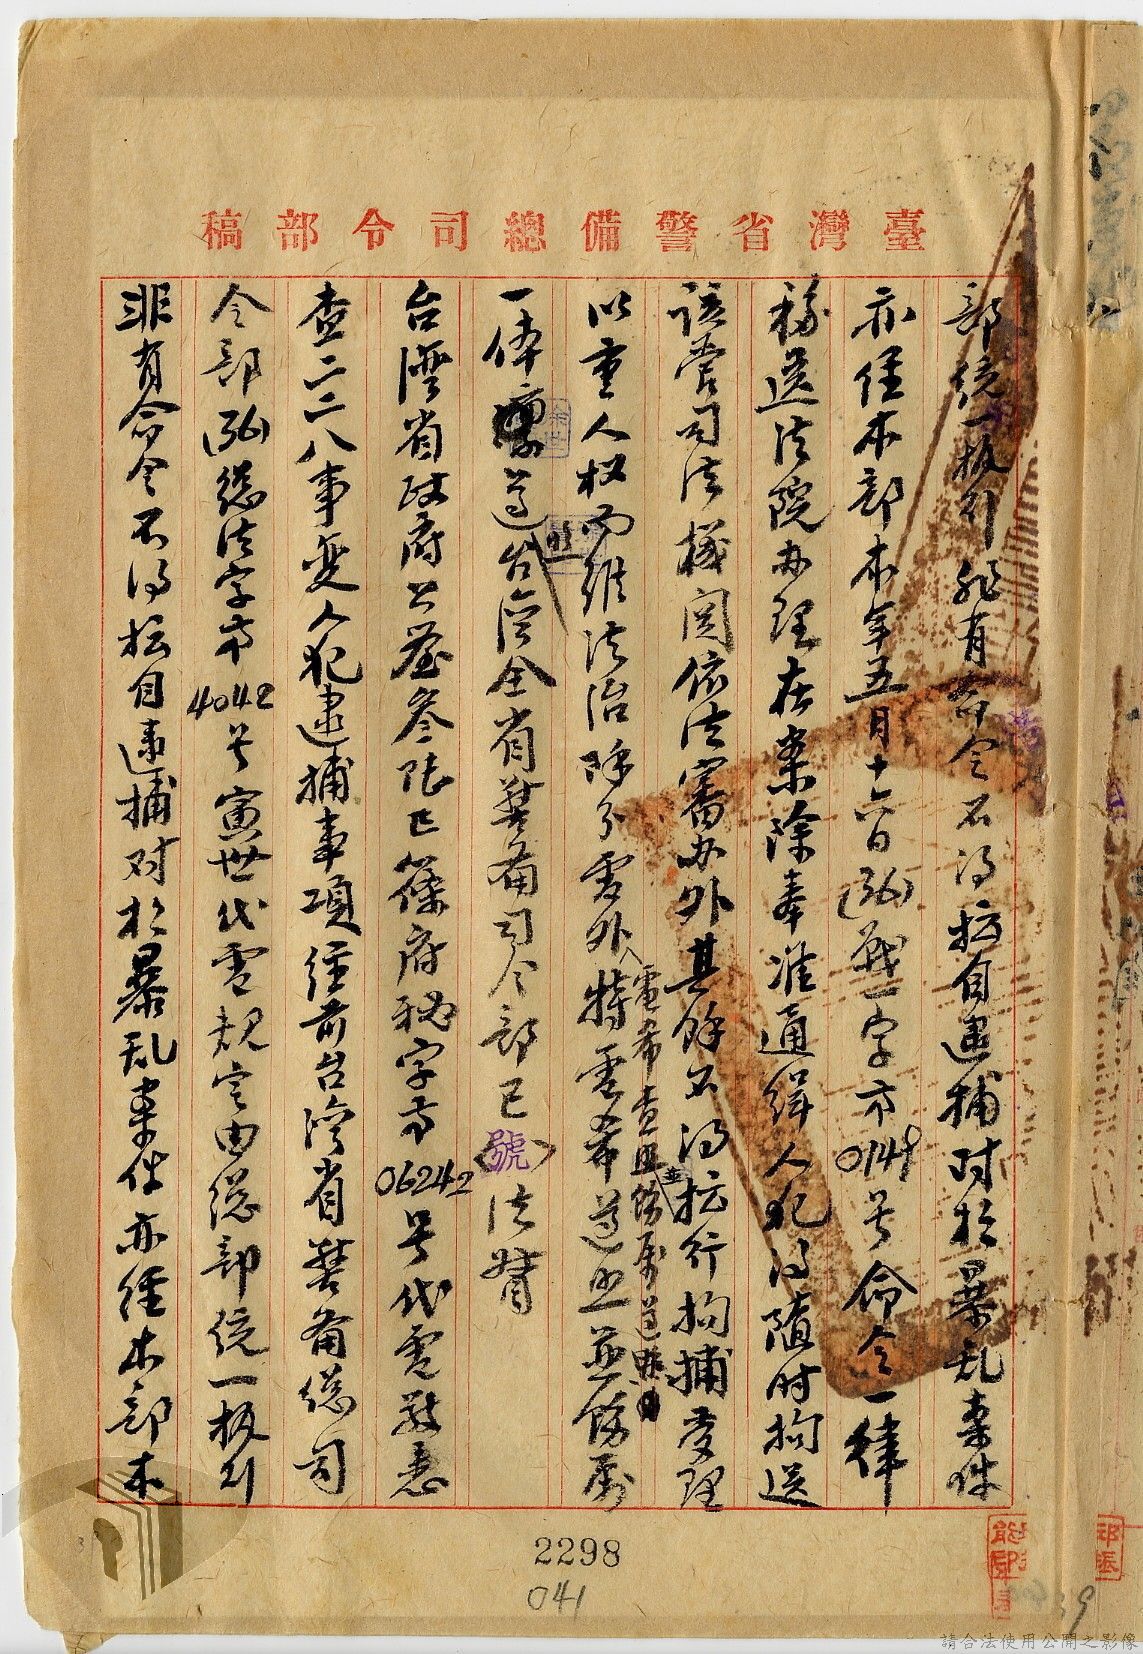 臺灣省警備總司令部稿
部統一执行非有命令不得擅自逮捕对於暴乱案件
亦经本部本年五月十六日(36)战一字第0149号命令一律
移送法院办理在案除奉准通缉人犯得随时拘送
该管司法机関依法審办外其餘不得擅行拘捕受理
電希查照飭属遵照
以重人权而維法治除分電外特電希遵照并飭属
一体凛遵台灣全省警备司令部已(號)法督
台灣省政府公鉴叁陆已篠府秘字第06242号代電敬悉
查二二八事变人犯逮捕事項经前台湾省警备總司
令部(36)總法字第4042号寅世代電規定由總部統一执行
非有命令不得擅自逮捕对於暴乱案件亦经本部本
2298
041
39
請合法使用公開之影像